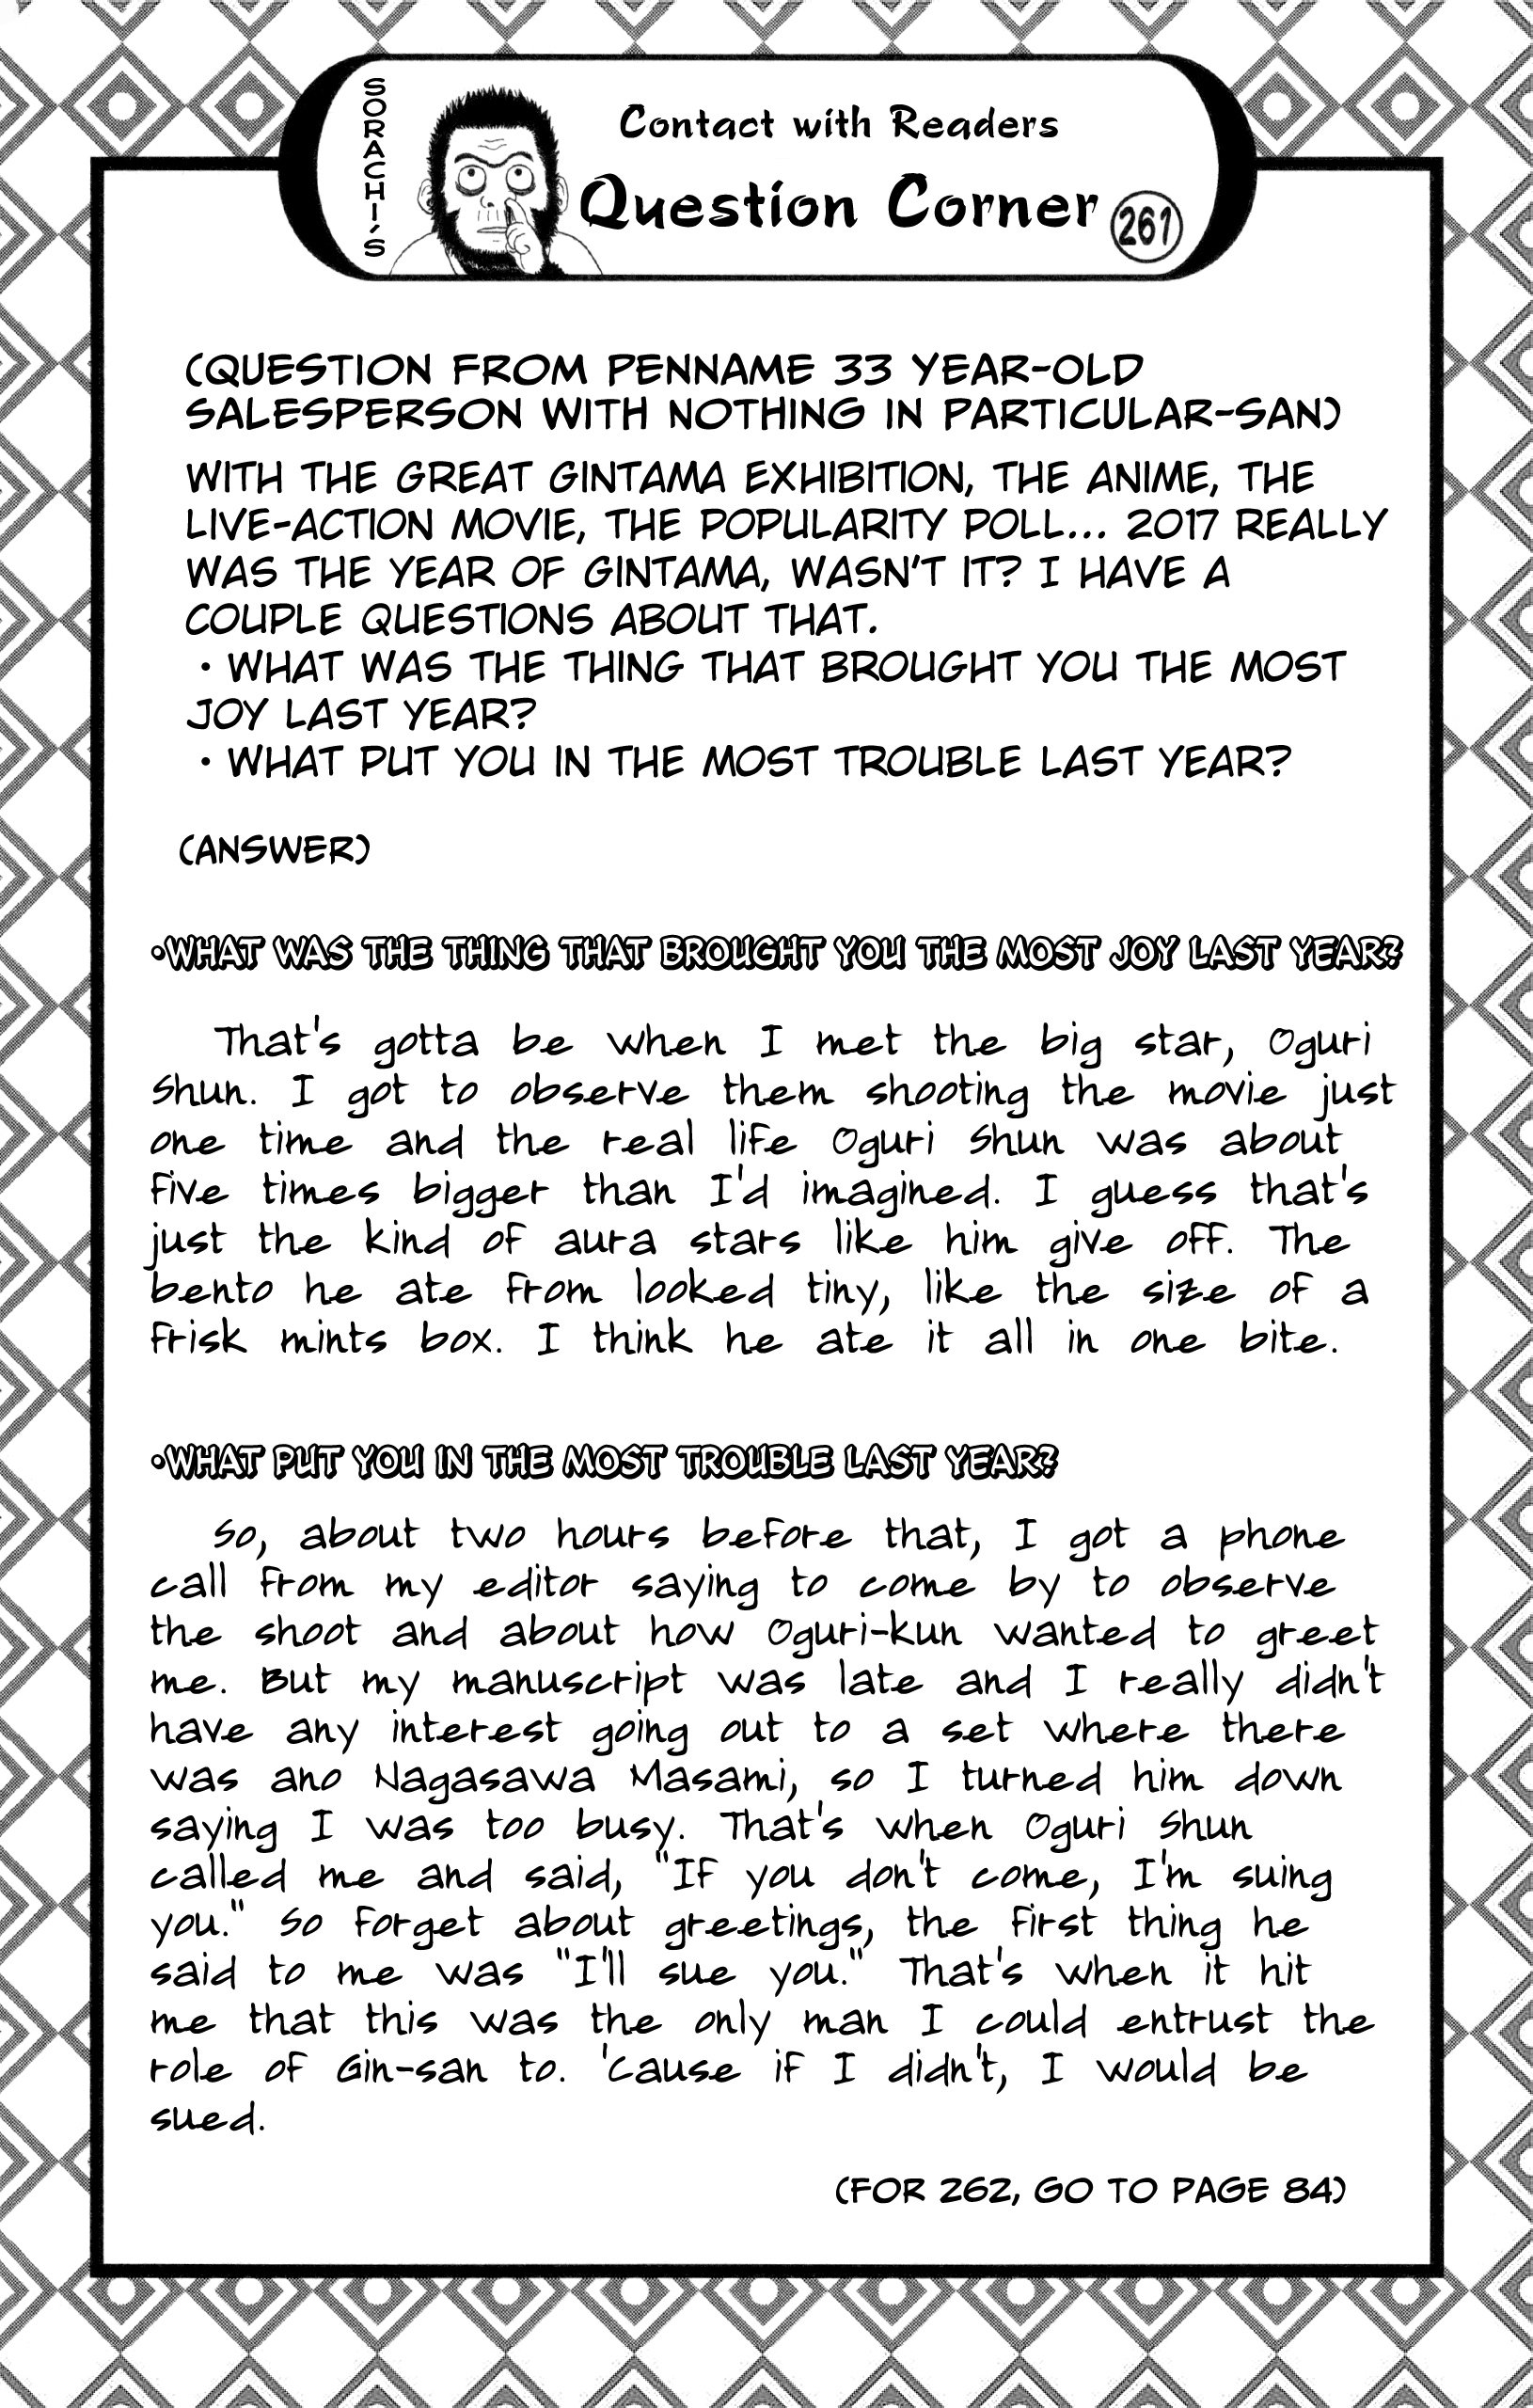 SORACHI'S
Contact with Readers
Question Corner 261
(QUESTION FROM PENNAME 33 YEAR-OLD
SALESPERSON WITH NOTHING IN PARTICULAR-SAN)
WITH THE GREAT GINTAMA EXHIBITION, THE ANIME, THE
LIVE-ACTION MOVIE, THE POPULARITY POLL... 2017 REALLY
WAS THE YEAR OF GINTAMA, WASN'T IT? I HAVE A
COUPLE QUESTIONS ABOUT THAT.
・WHAT WAS THE THING THAT BROUGHT YOU THE MOST
JOY LAST YEAR?
・WHAT PUT YOU IN THE MOST TROUBLE LAST YEAR?
(ANSWER)
・WHAT WAS THE THING THAT BROUGHT YOU THE MOST JOY LAST YEAR?
That's gotta be when I met the big star, Oguri
Shun. I got to observe them shooting the movie just
one time and the real life Oguri Shun was about
five times bigger than I'd imagined. I guess that's
just the kind of aura stars like him give off. The
bento he ate from looked tiny, like the size of a
frisk mints box. I think he ate it all in one bite.
・WHAT PUT YOU IN THE MOST TROUBLE LAST YEAR?
So, about two hours before that, I got a phone
call from my editor saying to come by to observe
the shoot and about how Oguri-kun wanted to greet
me. But my manuscript was late and I really didn't
have any interest going out to a set where there
was ano Nagasawa Masami, so I turned him down
saying I was too busy. That's when Oguri Shun
called me and said, "If you don't come, I'm suing
you." So forget about greetings, the first thing he
said to me was "I'll sue you." That's when it hit
me that this was the only man I could entrust the
role of Gin-san to. 'cause if I didn't, I would be
sued.
(FOR 262, GO TO PAGE 84)